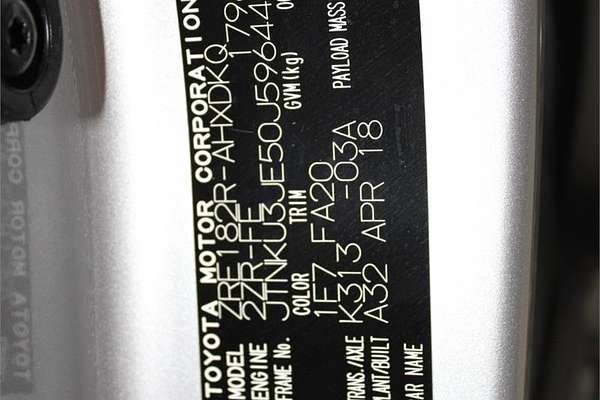 TOYOTA MOTOR CORPORATION
MODEL ZRE182R-AHXDKQ 179
ENGINE 2ZR-FE
FRAME No. JTNKU3JE50J59644
COLOR TRIM GVM(kg)
1E7 FA20
TRANS./AXLE K313 -03A PAYLOAD MASS
PLANT/BUILT A32 APR 18
CAR NAME